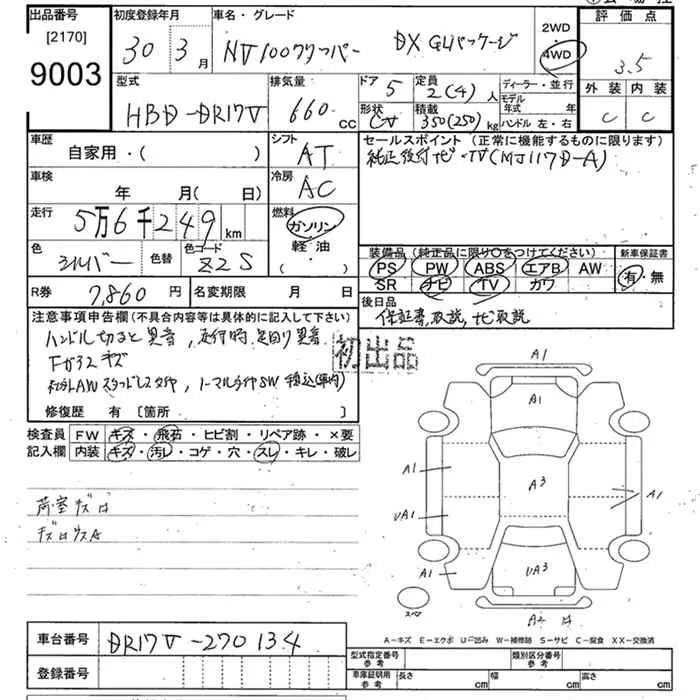 出品番号
[2170]
9003
初度登録年月
30 3月
車名・グレード
NV100クリッパー DX GLパッケージ
2WD
4WD
評価点
3.5
外装 内装
C C
型式
HBD-DR17V
排気量
660 CC
ドア 5
形状 CV
定員 2(4) 人
積載 350(250) kg
ディーラー・並行
モデル年式 年
ハンドル 左・右
車歴
自家用・( )
シフト
AT
車検
年 月(日)
冷房
AC
走行
5万6千249 km
燃料
ガソリン
軽・油
・( )
色
シルバー
色替
色コード
Z2S
セールスポイント(正常に機能するものに限ります)
純正後付ナビ・TV(MJ117D-A)
装備品(純正品に限り○をつけてください)
PS PW ABS エアB AW
SR ナビ TV カワ
新車保証書
有・無
R券 7,860 円
名変期限 月 日
後日品
保証書、取説、ナビ取説
注意事項申告欄(不具合内容等は具体的に記入して下さい)
ハンドル切ると異音、走行時足回り異音
Fガラスキズ
社外AWスタッドレスタイヤ、ノーマルタイヤSW積込(車内)
修復歴 有 [箇所 ]
初出品
検査員記入欄
FW キズ・飛石・ヒビ割・リペア跡・×要
内装 キズ・汚レ・コゲ・穴・スレ・キレ・破レ
荷室キズ
A1
A1
A1
A3
A1
UA1
A1
UA3
スペア
A-キズ E-エクボ U-凹み W-補修跡 S-サビ C-腐食 XX-交換済
車台番号 DR17V-270134
登録番号
型式指定番号 参考
類別区分番号 参考
車庫証明用 参考 長さ cm 幅 cm 高さ cm